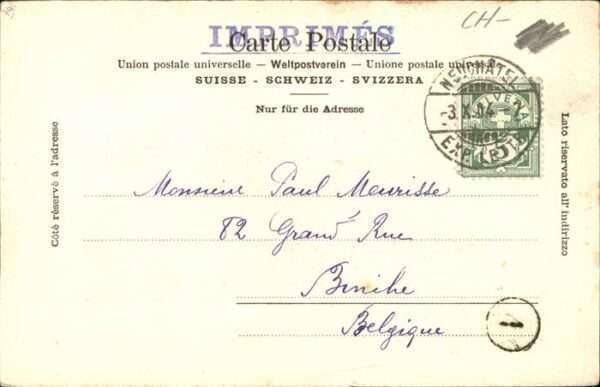 CH-
IMPRIMÉS
Carte Postale
Union postale universelle – Weltpostverein – Unione postale universale
SUISSE - SCHWEIZ - SVIZZERA
Nur für die Adresse
Côté réservé à l'adresse
Lato riservato all' indirizzo
NEUCHÂTEL
-3.X.04.-
EXP. LETTR.
5
Monsieur Paul Meurisse
82 Grand Rue
Binche
Belgique
1